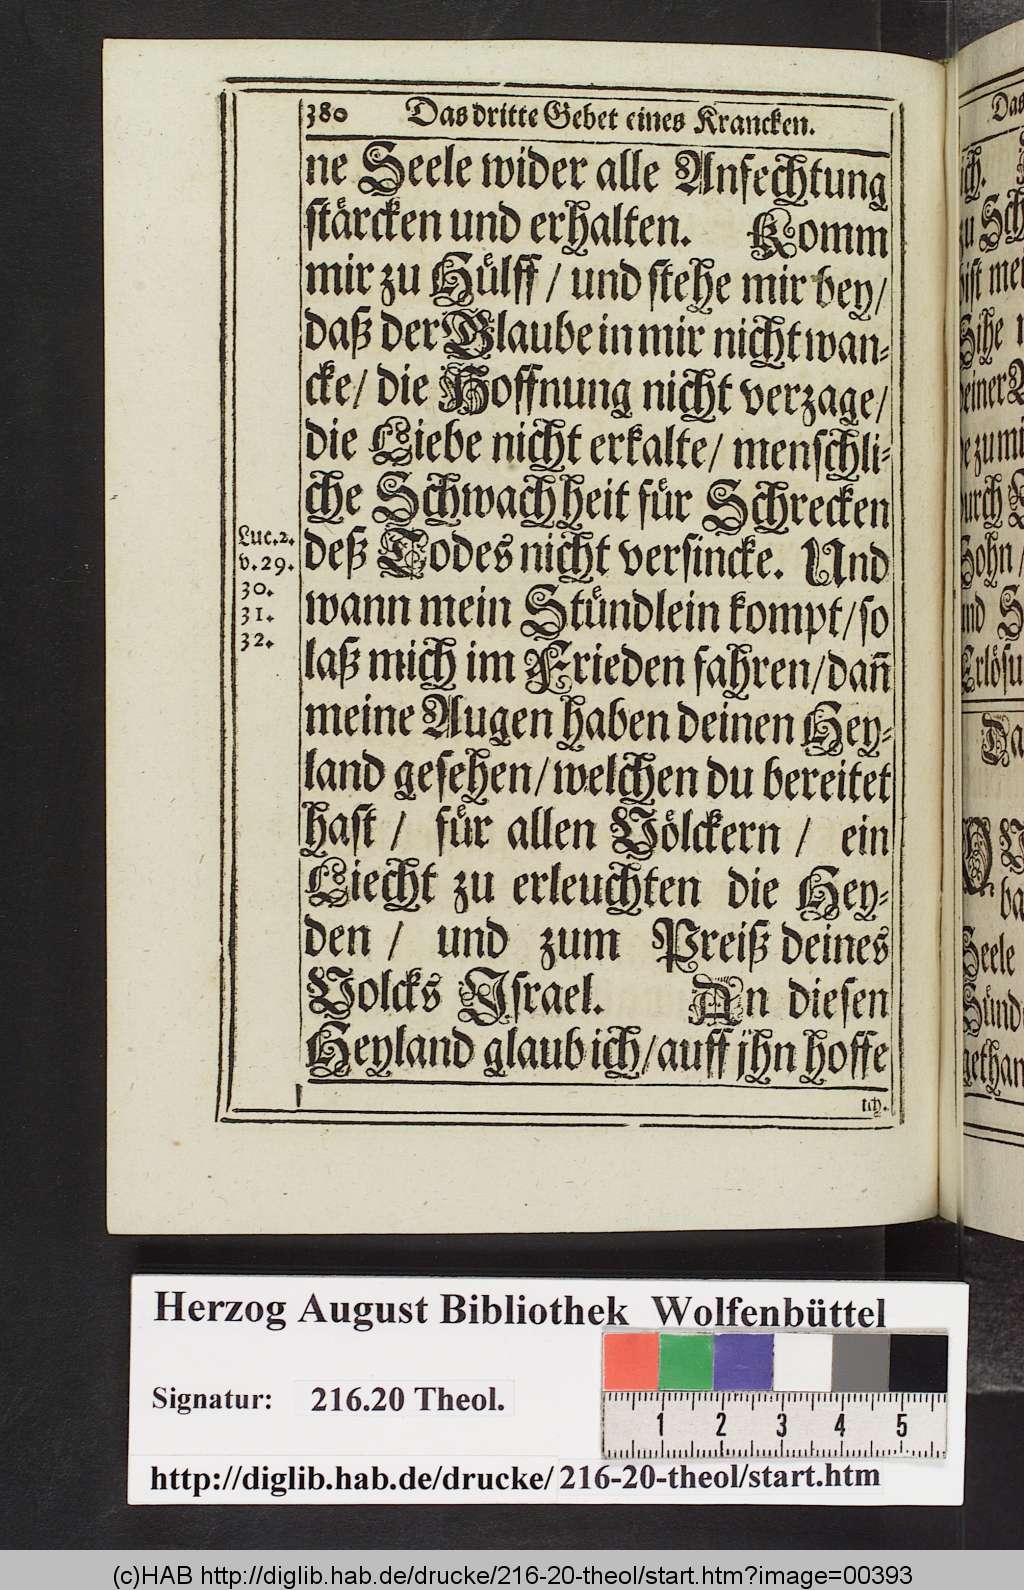 380 Das dritte Gebet eines Krancken.
ne Seele wider alle Anfechtung
stärcken und erhalten. Komm
mir zu Hülff / und stehe mir bey /
daß der Glaube in mir nicht wan-
cke / die Hoffnung nicht verzage /
die Liebe nicht erkalte / menschli-
che Schwachheit für Schrecken
deß Todes nicht versincke. Und
wann mein Stündlein kompt / so
laß mich im Frieden fahren / dañ
meine Augen haben deinen Hey-
land gesehen / welchen du bereitet
hast / für allen Völckern / ein
Liecht zu erleuchten die Hey-
den / und zum Preiß deines
Volcks Israel. An diesen
Heyland glaub ich / auff jhn hoffe
ich.
Luc. 2.
v. 29.
30.
31.
32.
Das
ich.
zu Sch
bist mei
Sihe
deiner
zu mi
durch
Sohn /
und S
Erlösu
Da
ba
Seele
Sünd
gethan
Herzog August Bibliothek Wolfenbüttel
Signatur: 216.20 Theol.
1 2 3 4 5
http://diglib.hab.de/drucke/ 216-20-theol/start.htm
(c)HAB http://diglib.hab.de/drucke/216-20-theol/start.htm?image=00393